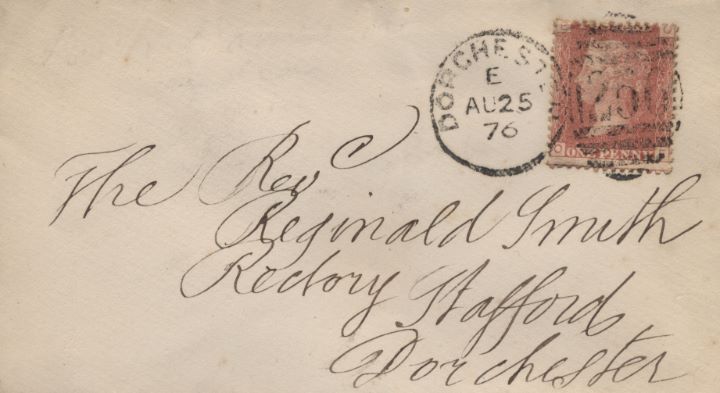 DORCHEST
E
AU25
76
ONE PENNY
The Revᵈ
Reginald Smith
Rectory Stafford,
Dorchester